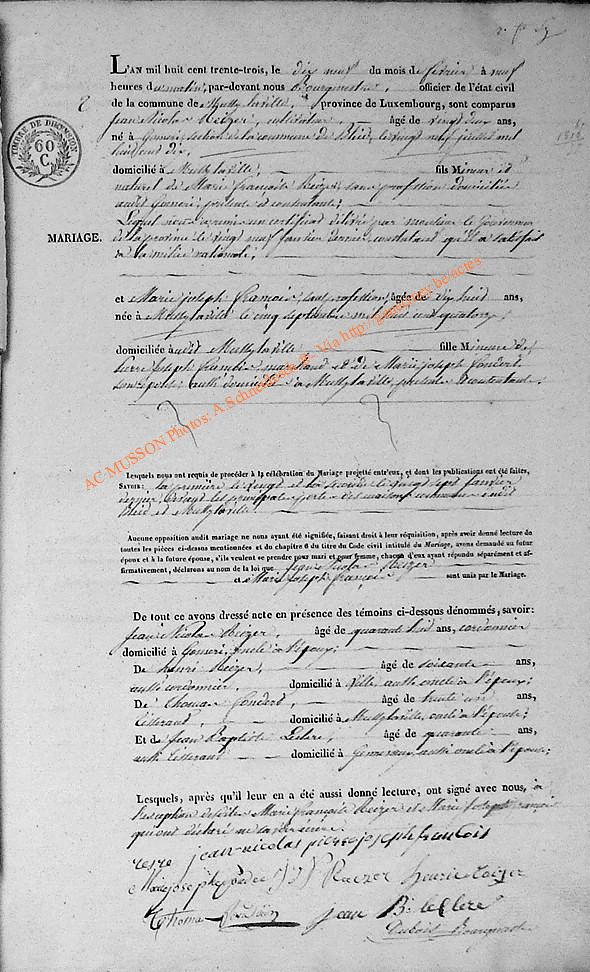 L'AN mil huit cent trente-trois, le dix neuf du mois de février à neuf
heures du matin, par-devant nous Bourgmestre, officier de l'état civil
de la commune de Mussy la ville, province de Luxembourg, sont comparus
Jean Nicolas Reizer, âgé de vingt deux ans,
né à Gomeri section de la commune de Bleid, le vingt neuf juillet mil
huit cent dix,
domicilié à Mussy la ville, fils Mineur et
naturel de Marie françoise Reizer, sans profession domiciliée
audit Gomeri, présente et consentante;
Lequel nous a remis un certificat délivré par monsieur le Gouverneur
de la province le vingt neuf janvier dernier, constatant qu'il a satisfait
à la milice nationale;
MARIAGE.
TIMBRE DE DIMENSION
60
C.
et Marie joseph françois, sans profession, âgée de dix huit ans,
née à Mussy la ville le cinq septembre mil huit cent quatorze,
domiciliée audit Mussy la ville fille Mineure de
pierre joseph marchand et de Marie joseph
son épouse domiciliés à Mussy la ville, présents et consentants.
AC-MUSSON Photos: A.Schneiders Via http://.be/actes
Lesquels nous ont requis de procéder à la célébration du Mariage projetté entr'eux, et dont les publications ont été faites,
SAVOIR: la première le vingt et la seconde le vingt sept janvier
dernier, devant les principales portes des maisons communes de
Bleid et Mussy la ville
Aucune opposition audit mariage ne nous ayant été signifiée, faisant droit à leur réquisition, après avoir donné lecture de
toutes les pièces ci-dessus mentionnées et du chapitre 6 du titre du Code civil intitulé du Mariage, avons demandé au futur
époux et à la future épouse, s'ils veulent se prendre pour mari et pour femme, chacun d'eux ayant répondu séparément et af-
firmativement, déclarons au nom de la loi que Jean Nicolas Reizer
et Marie Joseph françois sont unis par le Mariage.
De tout ce avons dressé acte en présence des témoins ci-dessous dénommés, savoir:
Jean Nicolas Reizer, âgé de quarante huit ans, cordonnier
domicilié à Gomeri, oncle à l'époux;
De henri Reizer, âgé de soixante ans,
aussi cordonnier, domicilié à Ville, aussi oncle à l'époux;
De thomas, âgé de trente un ans,
tisserand, domicilié à Mussy la ville, oncle à l'épouse;
Et de Jean Baptiste Leclere, âgé de quarante ans,
aussi tisserand domicilié à, aussi oncle à l'épouse;
Lesquels, après qu'il leur en a été aussi donné lecture, ont signé avec nous, à
l'exception desdites Marie françoise Reizer et Marie Joseph françois
qui ont déclaré ne le savoir.
jean nicolas pierre joseph francois
Marie joseph J N Raezer henrie
Thomas jean B. leclere
Dubois Bourgmestre